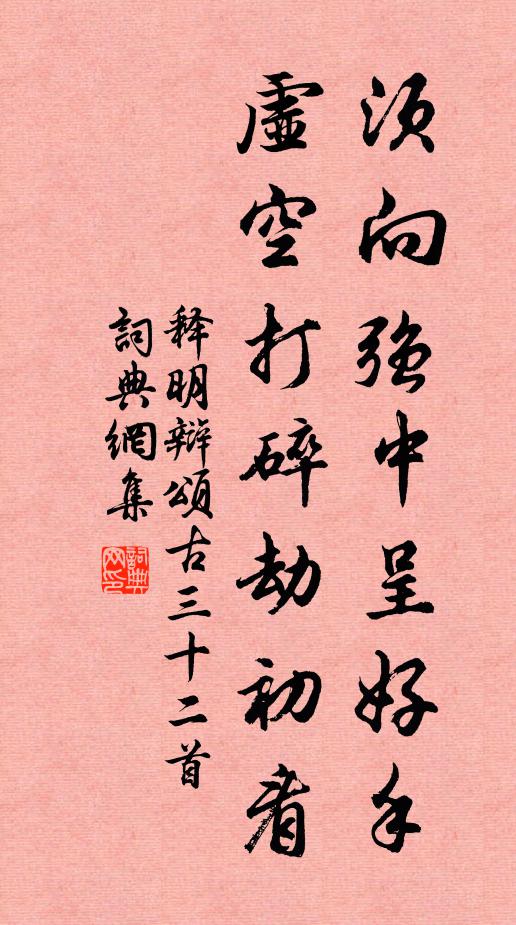 須向強中呈好手
虛空打碎劫初看
释明辯頌古三十二首
詞典網集
詞典网印